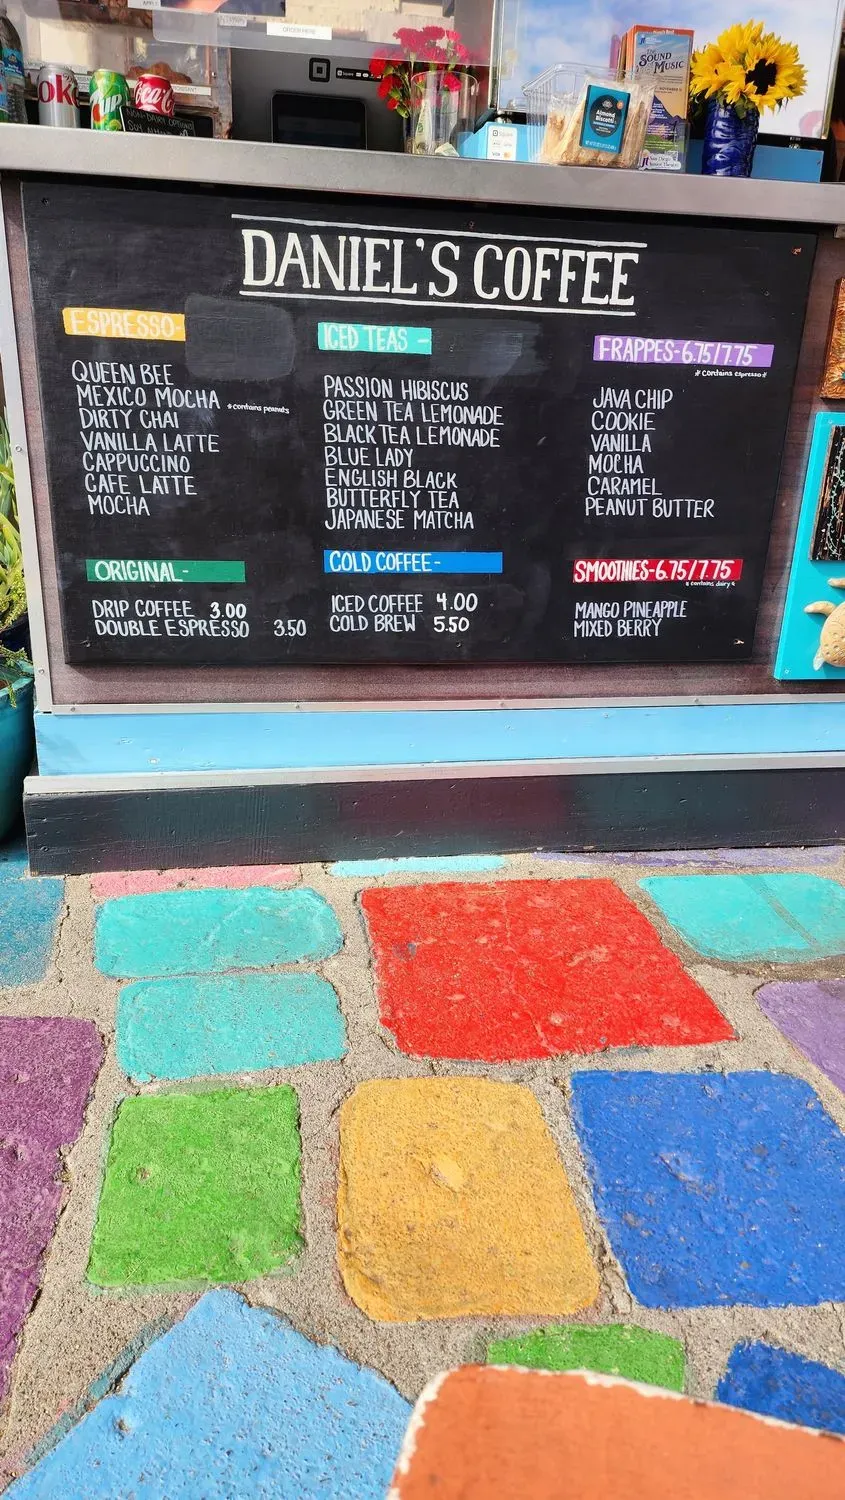 ORDER HERE
ok
7up
Coca-Cola
NON-DAIRY OPTIONS
SOY
Square
THE SOUND OF MUSIC
Almond Biscotti
DANIEL'S COFFEE
ESPRESSO-
QUEEN BEE
MEXICO MOCHA *contains peanuts
DIRTY CHAI
VANILLA LATTE
CAPPUCCINO
CAFE LATTE
MOCHA
ORIGINAL-
DRIP COFFEE 3.00
DOUBLE ESPRESSO 3.50
ICED TEAS -
PASSION HIBISCUS
GREEN TEA LEMONADE
BLACK TEA LEMONADE
BLUE LADY
ENGLISH BLACK
BUTTERFLY TEA
JAPANESE MATCHA
COLD COFFEE-
ICED COFFEE 4.00
COLD BREW 5.50
FRAPPES-6.75/7.75
*contains espresso*
JAVA CHIP
COOKIE
VANILLA
MOCHA
CARAMEL
PEANUT BUTTER
SMOOTHIES-6.75/7.75
*contains dairy*
MANGO PINEAPPLE
MIXED BERRY